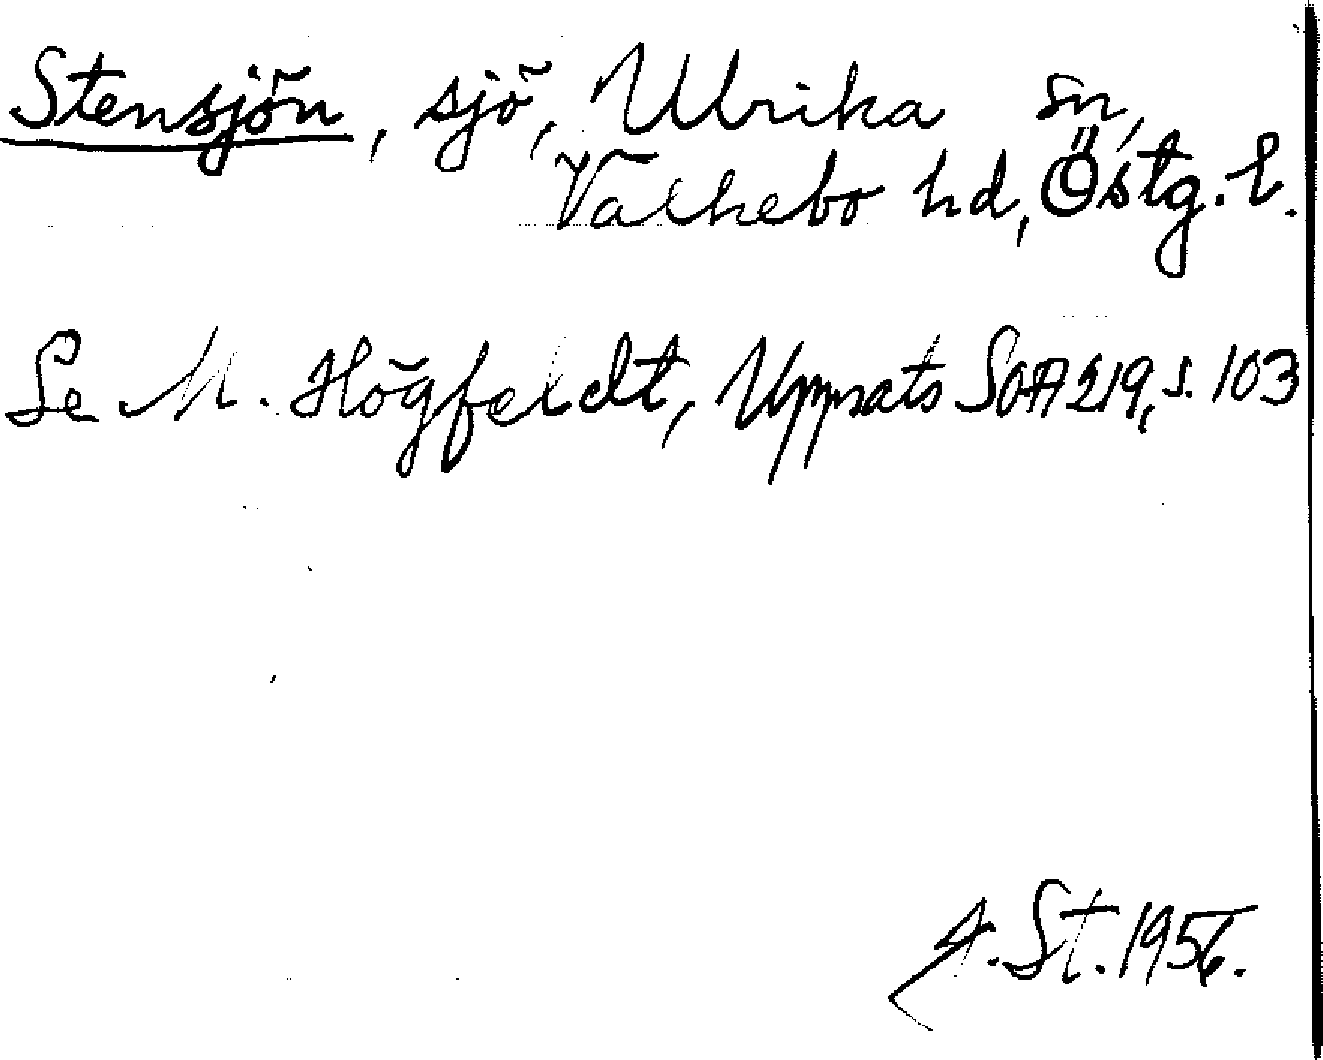 Stensjön, sjö, Ulrika sn,
Valkebo hd, Östg. l.
Se M. Högfeldt, Uppsats SOA 219, s. 103
A. St. 1956.